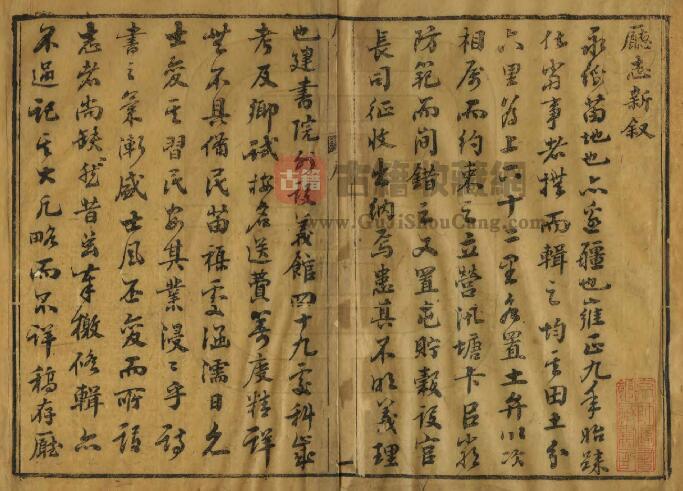 廳志新叙
永綏苗地也亦邊疆也雍正九年始隸
任當事者撫而輯之均其田土分
六里為上下十二里各置土弁以次
相屬而約束之立營汛塘卡臣
防範而間錯之又置倉貯穀設官
長司征收出納焉患其不明義理
也建書院外設義館四十九處科歲
考及鄉試按名送費籌度精詳
無不具備民苗雜處涵濡日久
士愛其習民安其業浸浸乎詩
書之氣漸盛士風丕變而所謂
志者尚缺然昔奉檄修輯亦
不過記其大凡略而不詳稿存廳
古籍
古籍收藏網
www.GuJiShouCang.com